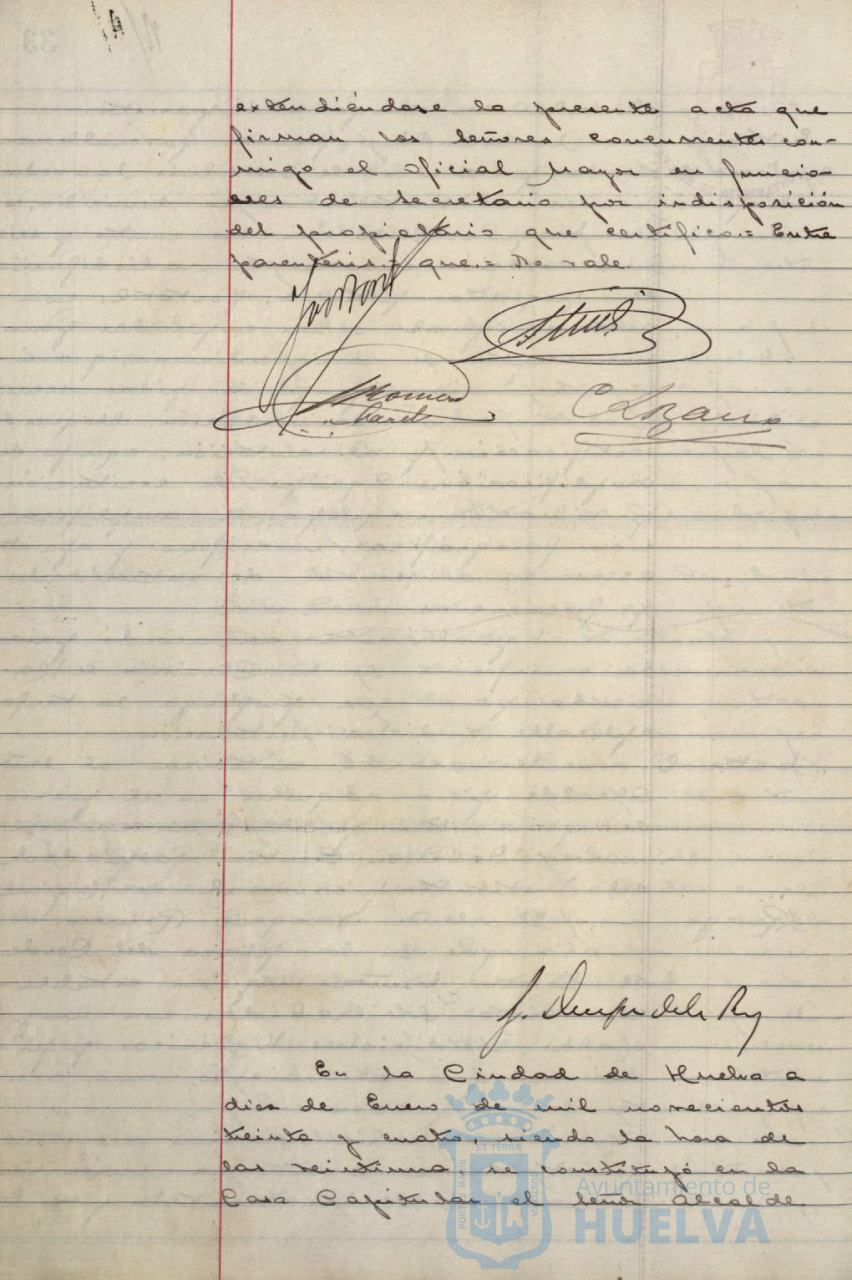 extendiéndose la presente acta que
firman los Señores concurrentes con-
migo el Oficial Mayor en funcio-
nes de Secretario por indisposición
del propietario que certifico.= Entre
parentesis = que = No vale
Romero
Lozano
En la Ciudad de Huelva a
diez de Enero de mil novecientos
treinta y cuatro, siendo la hora de
las veintiuna se constituyó en la
Casa Capitular el Señor Alcalde
ET TERRAE
Ayuntamiento de
HUELVA